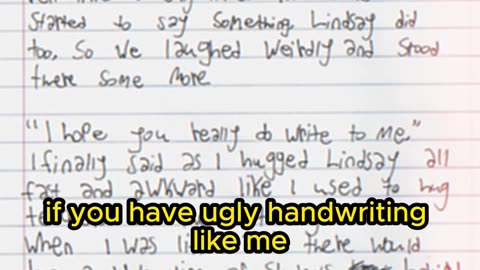 started to say something, Lindsay did
too, So we laughed Weirdly and Stood
there some more
"I hope you really do write to me."
I finally said as I hugged Lindsay all
fast and awkward like I used to hug
if you have ugly handwriting
like me
when I was li there would